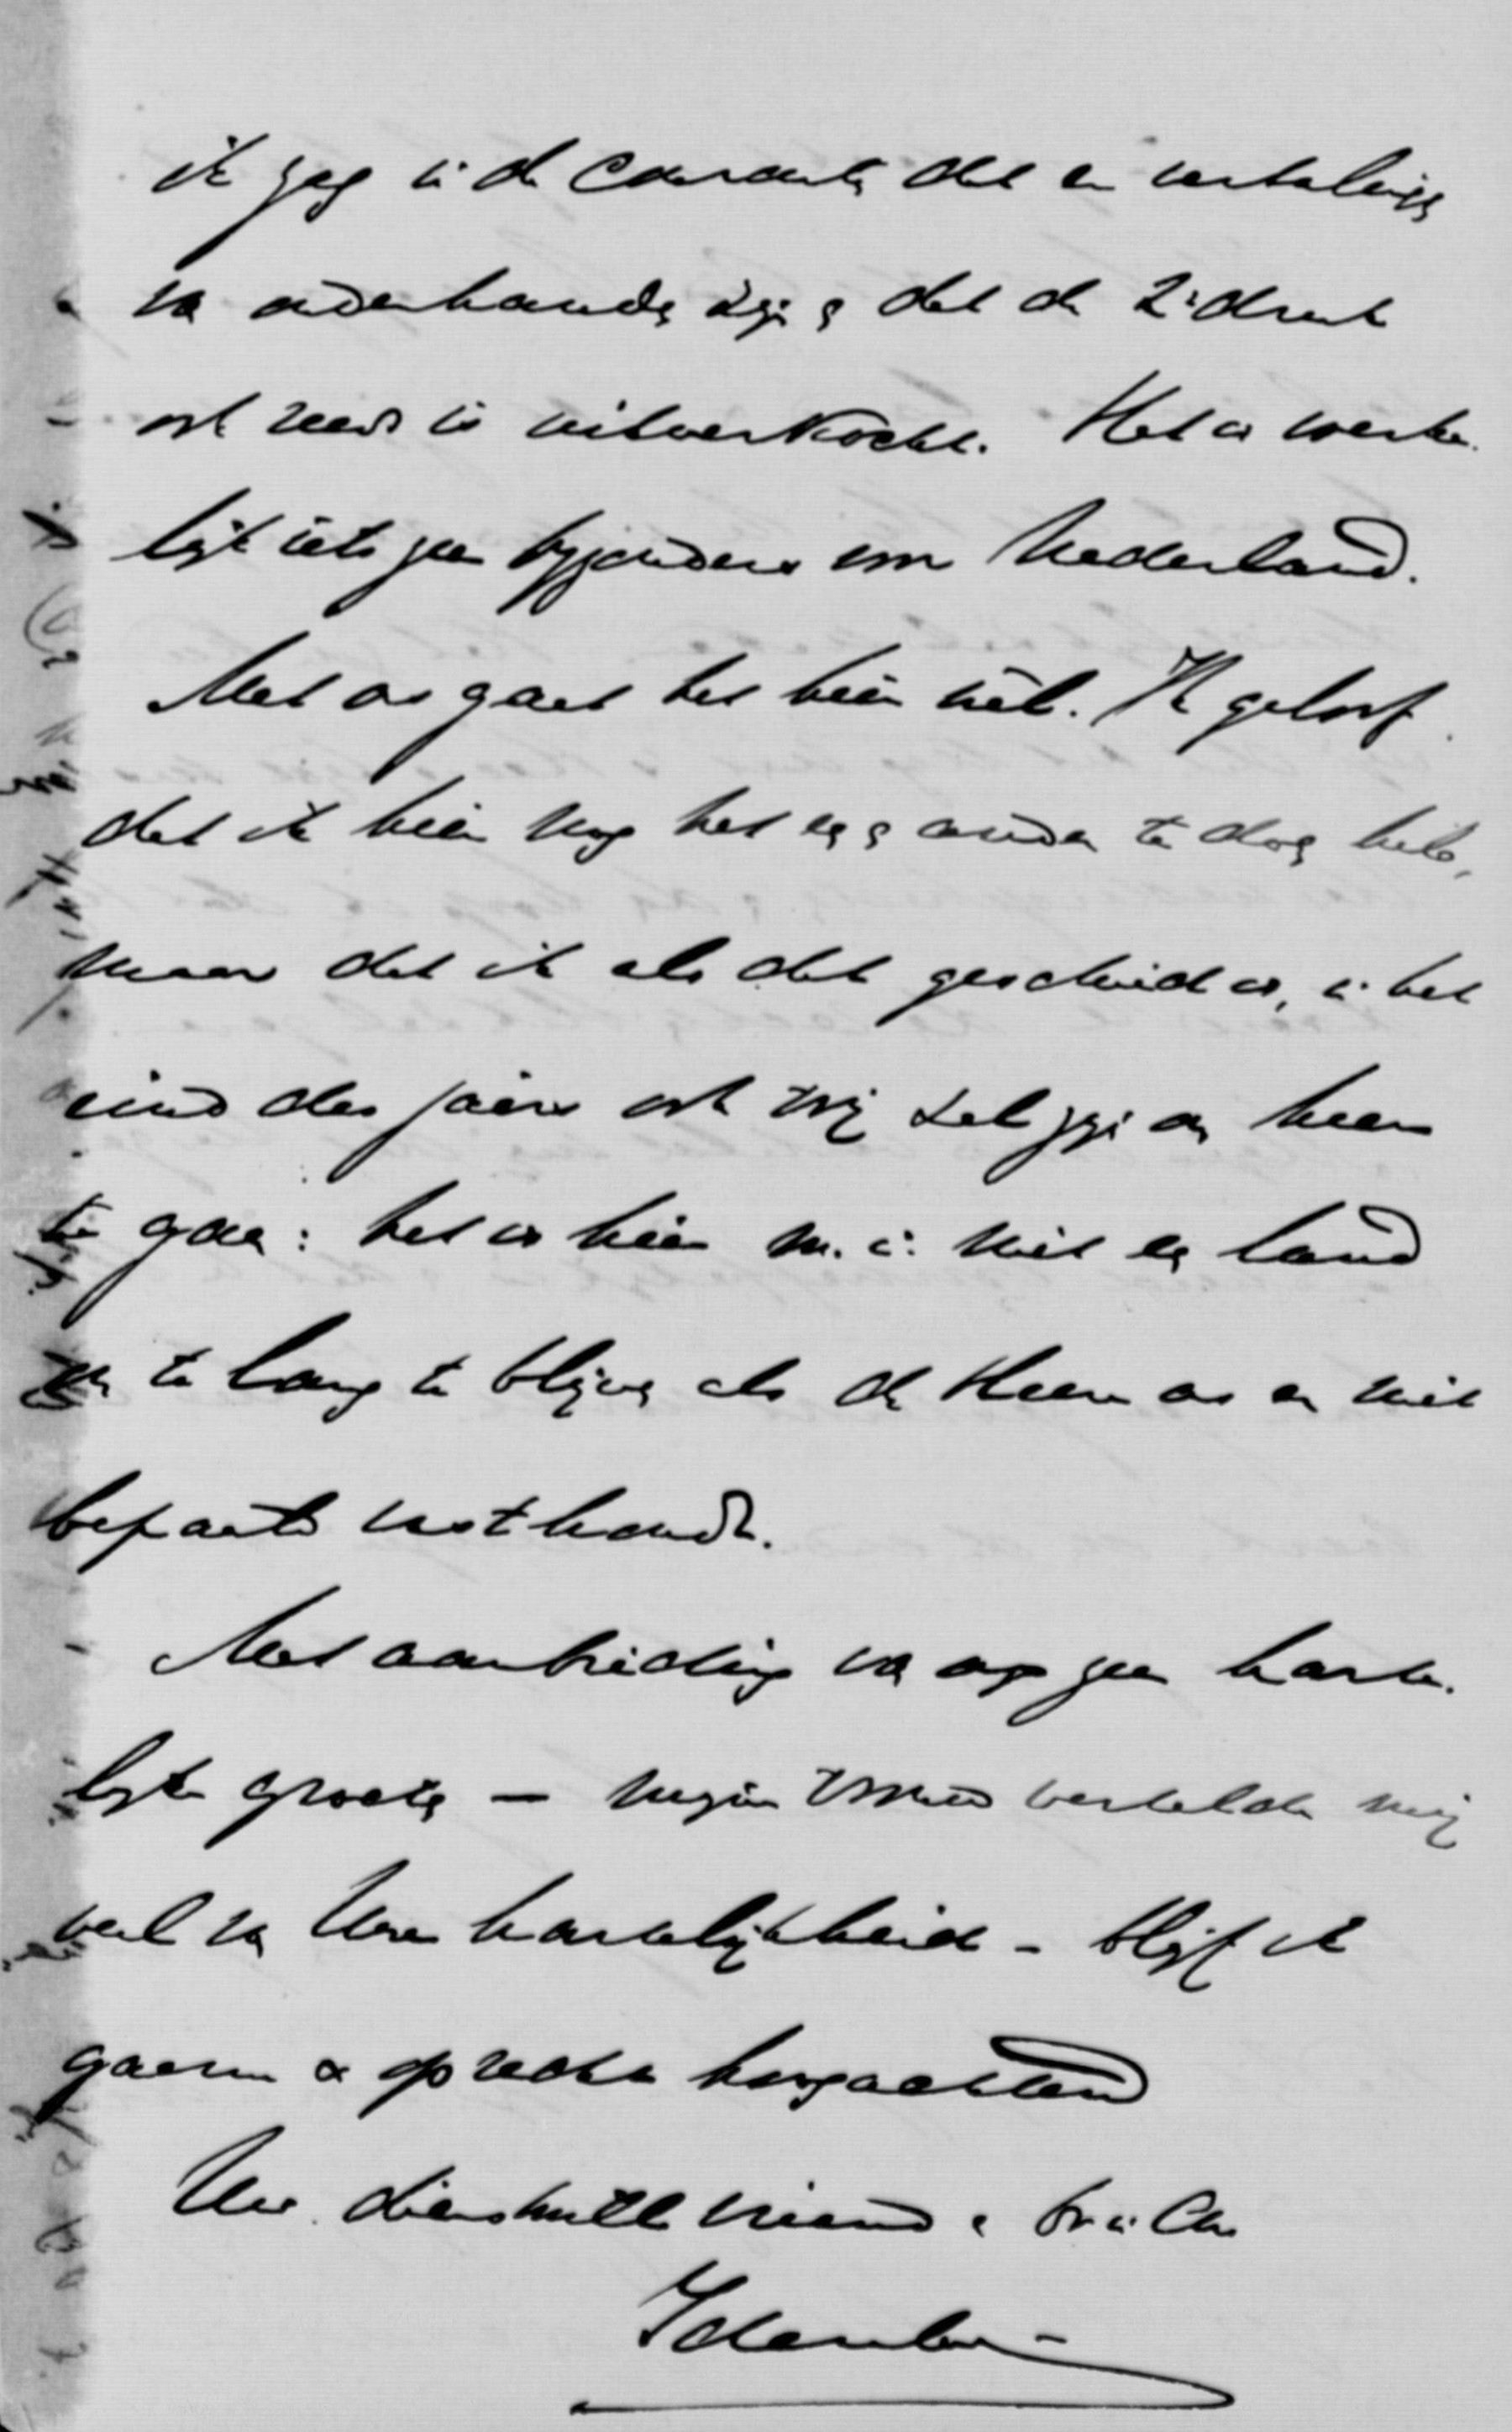 ik zag in de Couranten dat er vertalingen
van onderhanden zijn en dat de 2e druk
ook reeds is uitverkocht. Het is werke-
lijk iets zeer byzonders voor Nederland.
Met ons gaat het hier wel. Ik geloof
dat ik hier nog het een en ander te doen heb,
maar dat ik als dat geschied is, in het
eind des jaars ook vrij zal zijn om heen
te gaan: het is hier m.i. niet een land
om te lang te blijven als de Heere ons er niet
bepaald vasthoudt.
Met aanbieding van onze zeer harte-
lijke groeten — mijn vrouw vertelde mij
veel van Uwe hartelijkheid - blijf ik
gaarne & oprecht hoogachtend
Uw dienstwill vriend en br in Chr
Idenburg